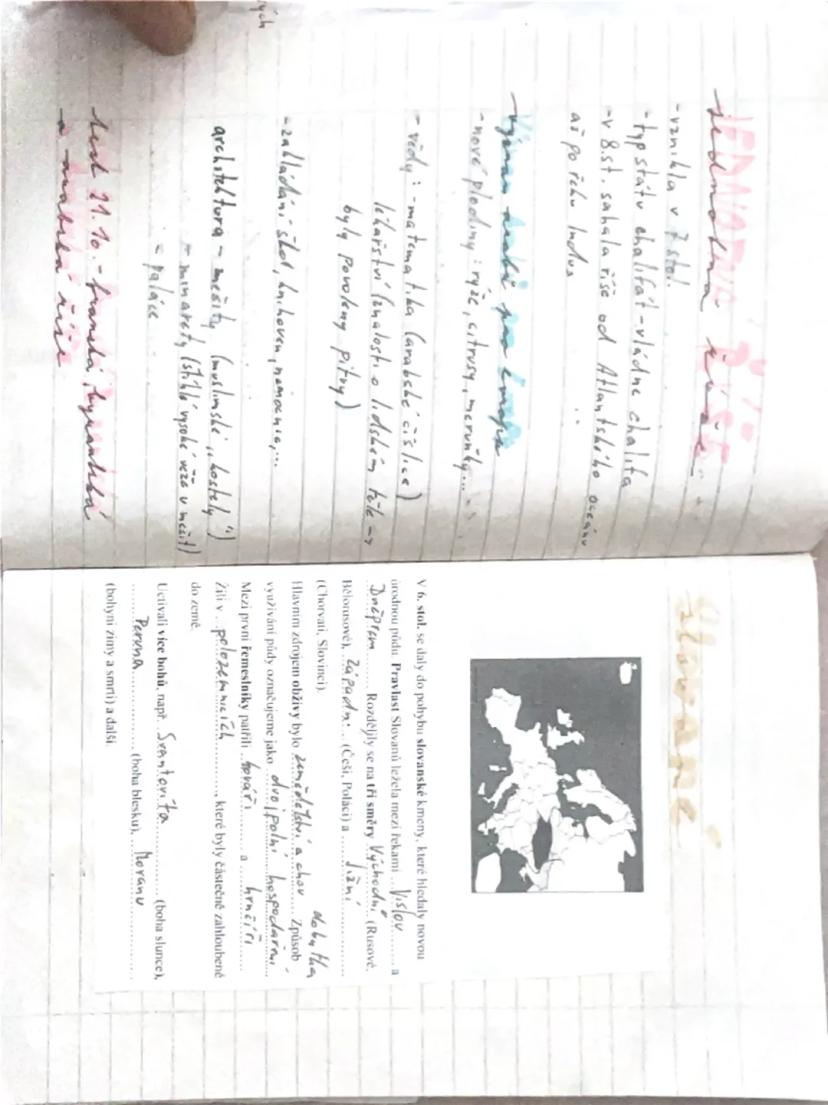 JEDNOTNÁ ŘÍŠE
-vznikla v 7.stol.
-typ státu chalifát-vládne chalífa
-v 8.st. sahala říše od Atlantského oceánu
až po řeku Indus
Význam Arabů pro Evropu
-nové plodiny: rýže, citrusy, meruňky...
-vědy: -matematika (arabské číslice)
lékařství (znalosti o lidském těle →
byly povoleny pitvy)
-zakládání škol, knihoven, nemocnic,...
architektura - mešity (muslimské „kostely")
- minarety (štíhlé vysoké věže u mešit)
- paláce
test 21.10. - franská, byzantská
a arabská říše
ých
Slované
V 6. stol. se daly do pohybu slovanské kmeny, které hledaly novou
úrodnou půdu. Pravlast Slovanů ležela mezi řekami Vislou a
Dněprem Rozdělily se na tři směry Východní (Rusové,
Bělorusové), západní (Češi, Poláci) a Jižní
(Chorvati, Slovinci).
Hlavním zdrojem obživy bylo zemědělství a chov dobytka Způsob
využívání půdy označujeme jako dvojpolní hospodaření
Mezi první řemeslníky patřili kováři a hrnčíři
Žili v polozemnicích, které byly částečně zahloubené
do země.
Uctívali více bohů, např. Svantovíta (boha slunce),
Peruna (boha blesku), Moranu
(bohyni zimy a smrti) a další.